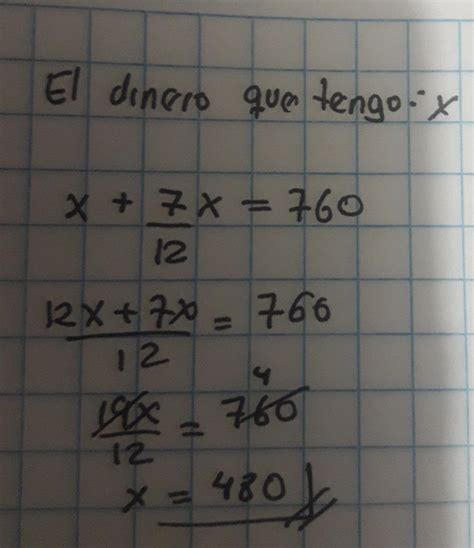 El dinero que tengo: x
x + 7/12 x = 760
12x + 7x / 12 = 760
19x / 12 = 760 4
x = 480